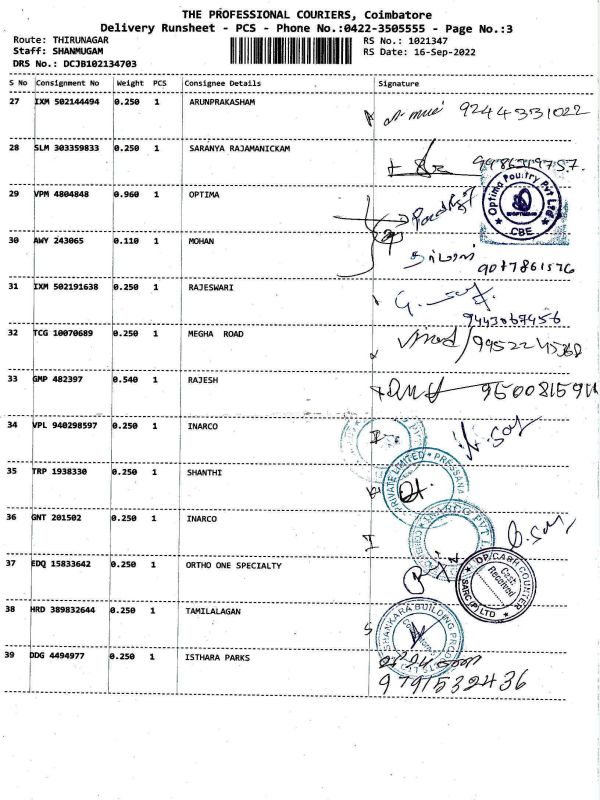 THE PROFESSIONAL COURIERS, Coimbatore
Delivery Runsheet - PCS - Phone No.:0422-3505555 - Page No.:3
Route: THIRUNAGAR RS No.: 1021347
Staff: SHANMUGAM RS Date: 16-Sep-2022
DRS No.: DCJB102134703
S No Consignment No Weight PCS Consignee Details Signature
27 IXM 502144494 0.250 1 ARUNPRAKASHAM
9244331022
28 SLM 303359833 0.250 1 SARANYA RAJAMANICKAM
9486319757.
29 VPM 4804848 0.960 1 OPTIMA
Optima Poultry Pvt Ltd
CBE
30 AWY 243065 0.110 1 MOHAN
9077861576
31 IXM 502191638 0.250 1 RAJESWARI
9443067456
32 TCG 10070689 0.250 1 MEGHA ROAD
33 GMP 482397 0.540 1 RAJESH
34 VPL 940298597 0.250 1 INARCO
35 TRP 1938330 0.250 1 SHANTHI
PRIVATE LIMITED * PRESSANA
36 GNT 201502 0.250 1 INARCO
INARCO PVT
37 EDQ 15833642 0.250 1 ORTHO ONE SPECIALTY
OP/CASH COUNTER
Cash Received
38 HRD 389832644 0.250 1 TAMILALAGAN
SHANKARA BUILDING
39 DDG 4494977 0.250 1 ISTHARA PARKS
9791532436